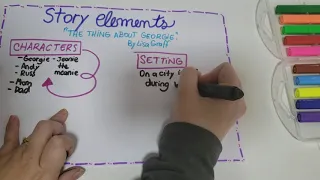 Story elements
"THE THING ABOUT GEORGIE"
By Lisa Graff
CHARACTERS
- Georgie - Jeanie
the
meanie
- Andy
- Russ
- Mom
- Dad
SETTING
On a city
during